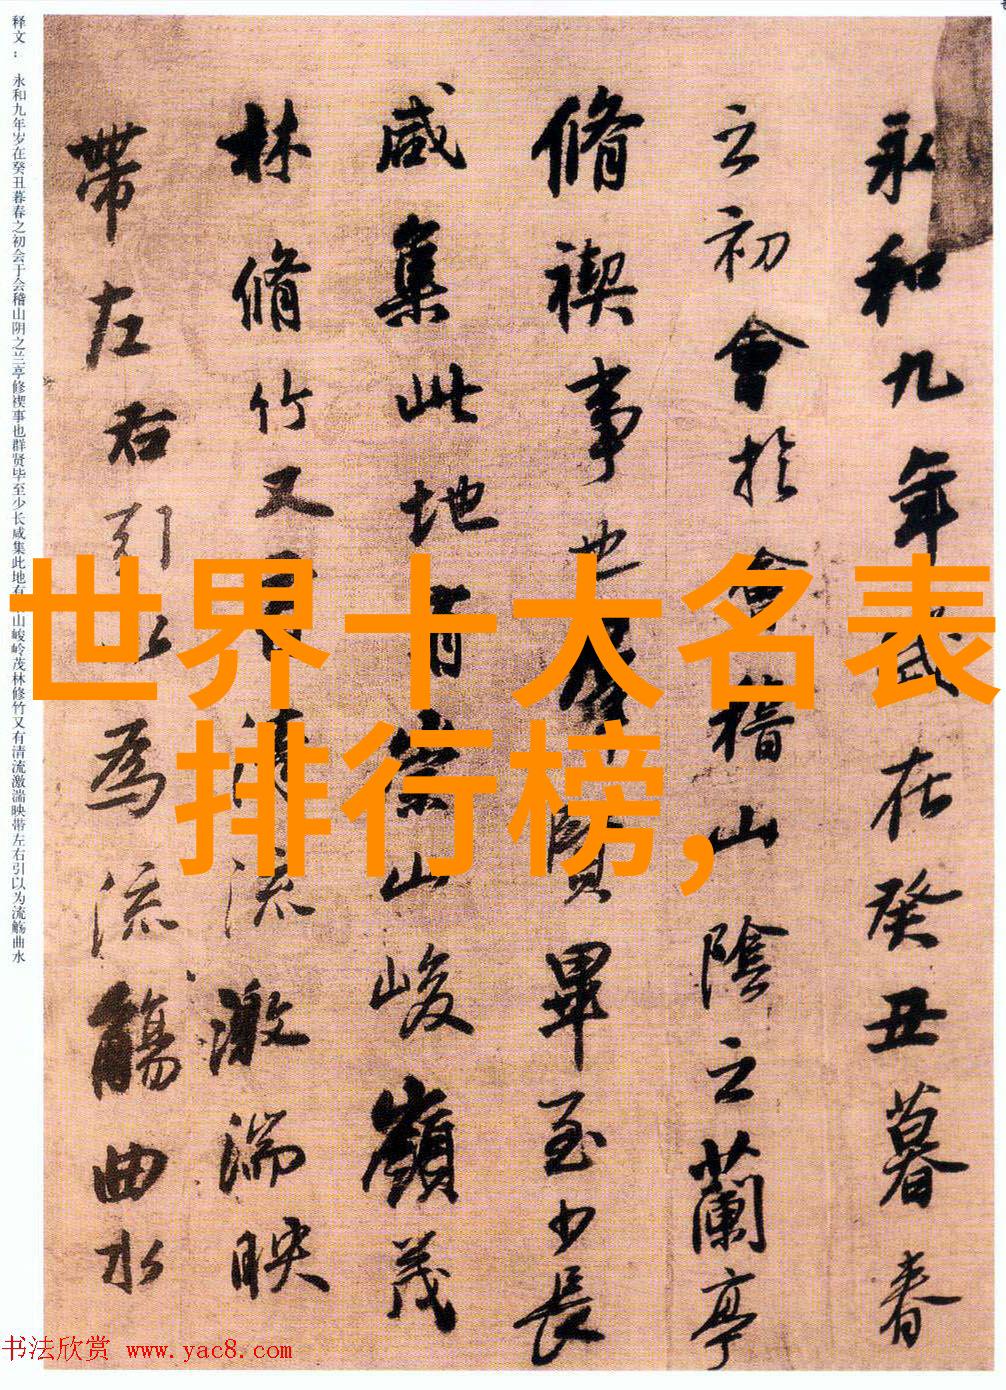 永和九年歲在癸丑暮春
之初會於會稽山陰之蘭亭
脩禊事也羣賢畢至少長
咸集此地有崇山峻嶺茂
林脩竹又有清流激湍映
帶左右引以為流觴曲水
释文： 永和九年岁在癸丑暮春之初会于会稽山阴之兰亭修禊事也群贤毕至少长咸集此地有山峻岭茂林修竹又有清流激湍映带左右引以为流觞曲水
世界十大名表
排行榜,
书法欣赏 www.yac8.com